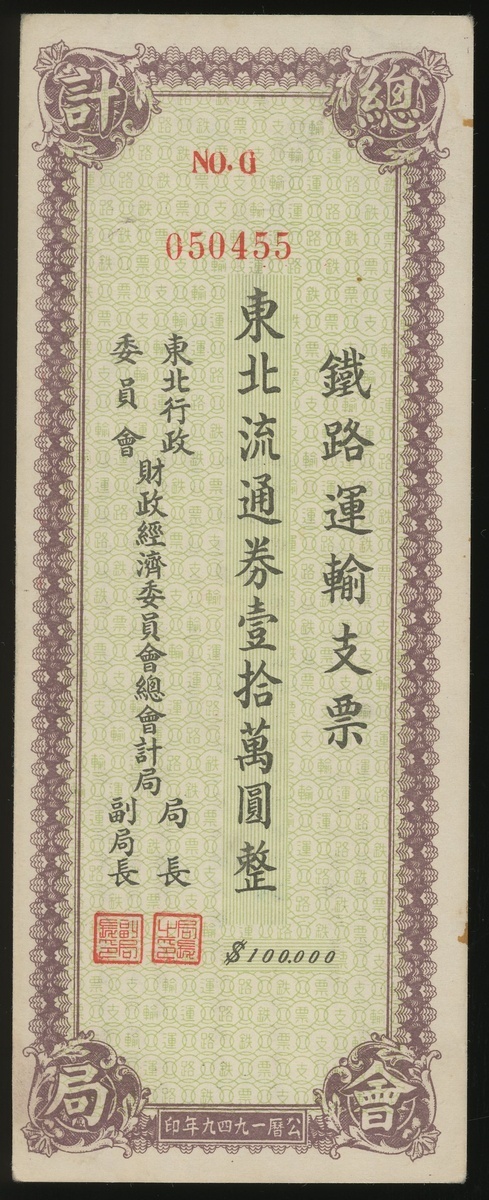 總會計局
NO. G
050455
鐵路運輸支票
東北流通券壹拾萬圓整
$100.000
東北行政
委員會
財政經濟委員會總會計局
局長
副局長
局長之印
副局長印
公曆一九四九年印